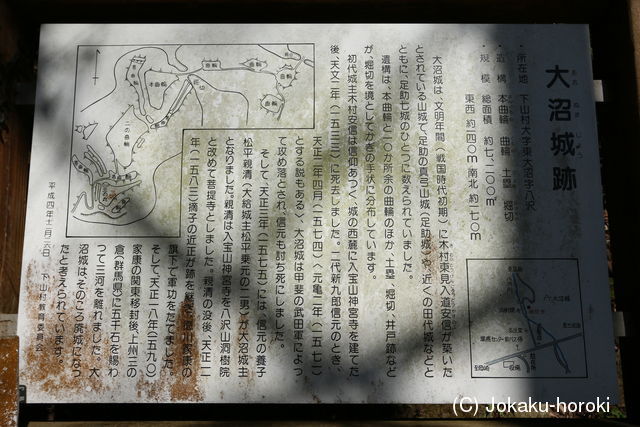 大沼城跡
おお ぬま じょう
・所在地 下山村大字東大沼字八沢
・遺構 本曲輪 曲輪 土塁 堀切
・規模 総面積 約七、二〇〇㎡
東西 約四〇m 南北 約一七〇m
大沼城は、文明年間(戦国時代初期)に木村東見入道安信が築いた
とされている山城で、足助の真弓山城(足助城)や、近くの田代城などと
ともに、足助七城のひとつに数えられていました。
遺構は、本曲輪と二〇か所余の曲輪のほか、土塁、堀切、井戸跡など
が、堀切を境としてかぎの手状に分布しています。
初代城主木村安信は信仰あつく、城の西麓に入宝山神宮寺を建てた
後、天文二年(一五三三)に死去しました。二代新九郎信元のとき、
天正二年四月(一五七四)(元亀二年(一五七一)
とする説もある)、大沼城は甲斐の武田軍によっ
て攻め落とされ、信元も討ち死にしました。
そして、天正三年(一五七五)には、信元の養子
松平親清(大給城主松平乗元の二男)が大沼城主
となりました。親清は入宝山神宮寺を八沢山洞樹院
と改めて菩提寺としました。親清の没後、天正一一
年(一五八三)摘子の近正が跡を継ぎ、徳川家康の
旗下で軍功をたてました。
そして、天正一八年(一五九〇)
家康の関東移封後、上州三の
倉(群馬県)に五千石を賜わ
って三河を離れました。大
沼城は、そのころ廃城になっ
たと考えられています。
下山村教育委員会
本曲輪
二の曲輪
曲輪
曲輪
曲輪
堀切
(C) Jokaku-horoki